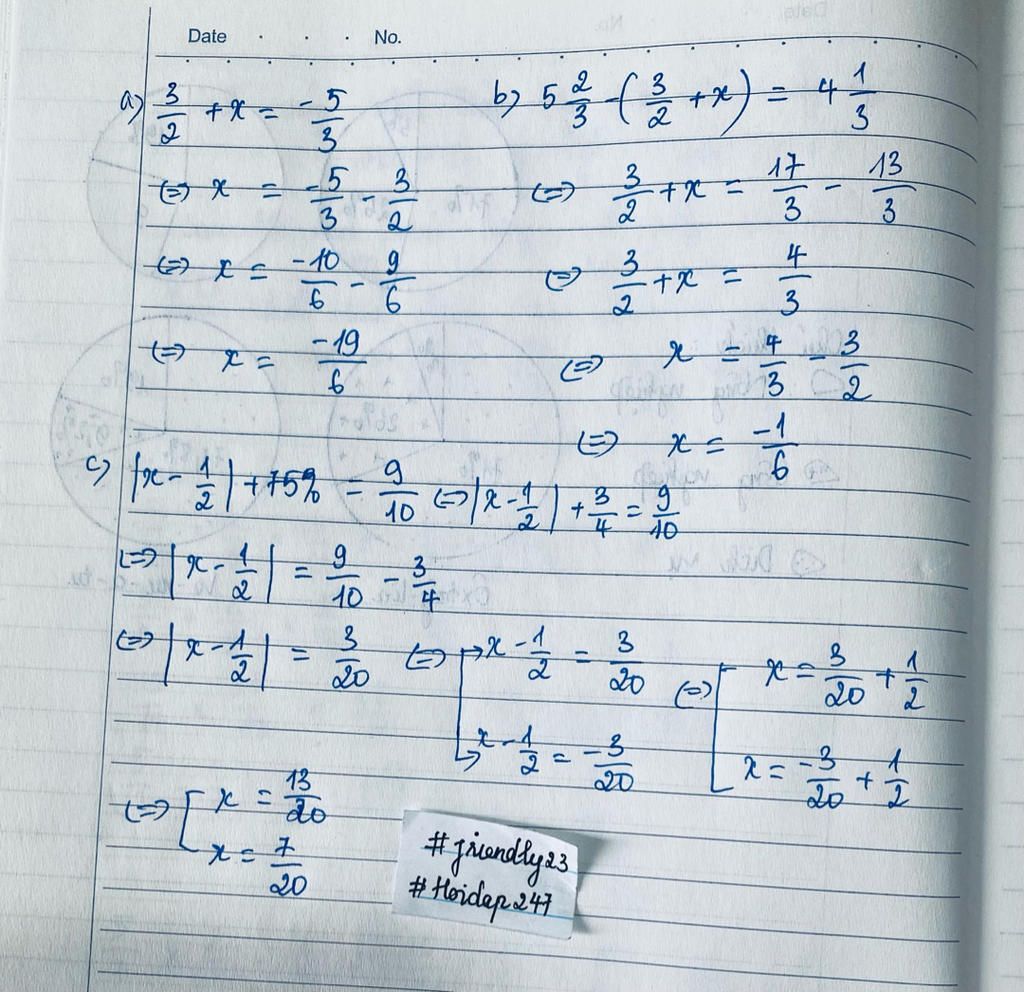 Date . . . No.
a) 3/2 + x = -5/3
<=> x = -5/3 - 3/2
<=> x = -10/6 - 9/6
<=> x = -19/6
b) 5 2/3 - (3/2 + x) = 4 1/3
<=> 3/2 + x = 17/3 - 13/3
<=> 3/2 + x = 4/3
<=> x = 4/3 - 3/2
<=> x = -1/6
c) |x - 1/2| + 75% = 9/10 <=> |x - 1/2| + 3/4 = 9/10
<=> |x - 1/2| = 9/10 - 3/4
<=> |x - 1/2| = 3/20 <=> [ x - 1/2 = 3/20 <=> [ x = 3/20 + 1/2
x - 1/2 = -3/20 x = -3/20 + 1/2
<=> [ x = 13/20
x = 7/20
#friendly23
#Hoidap247